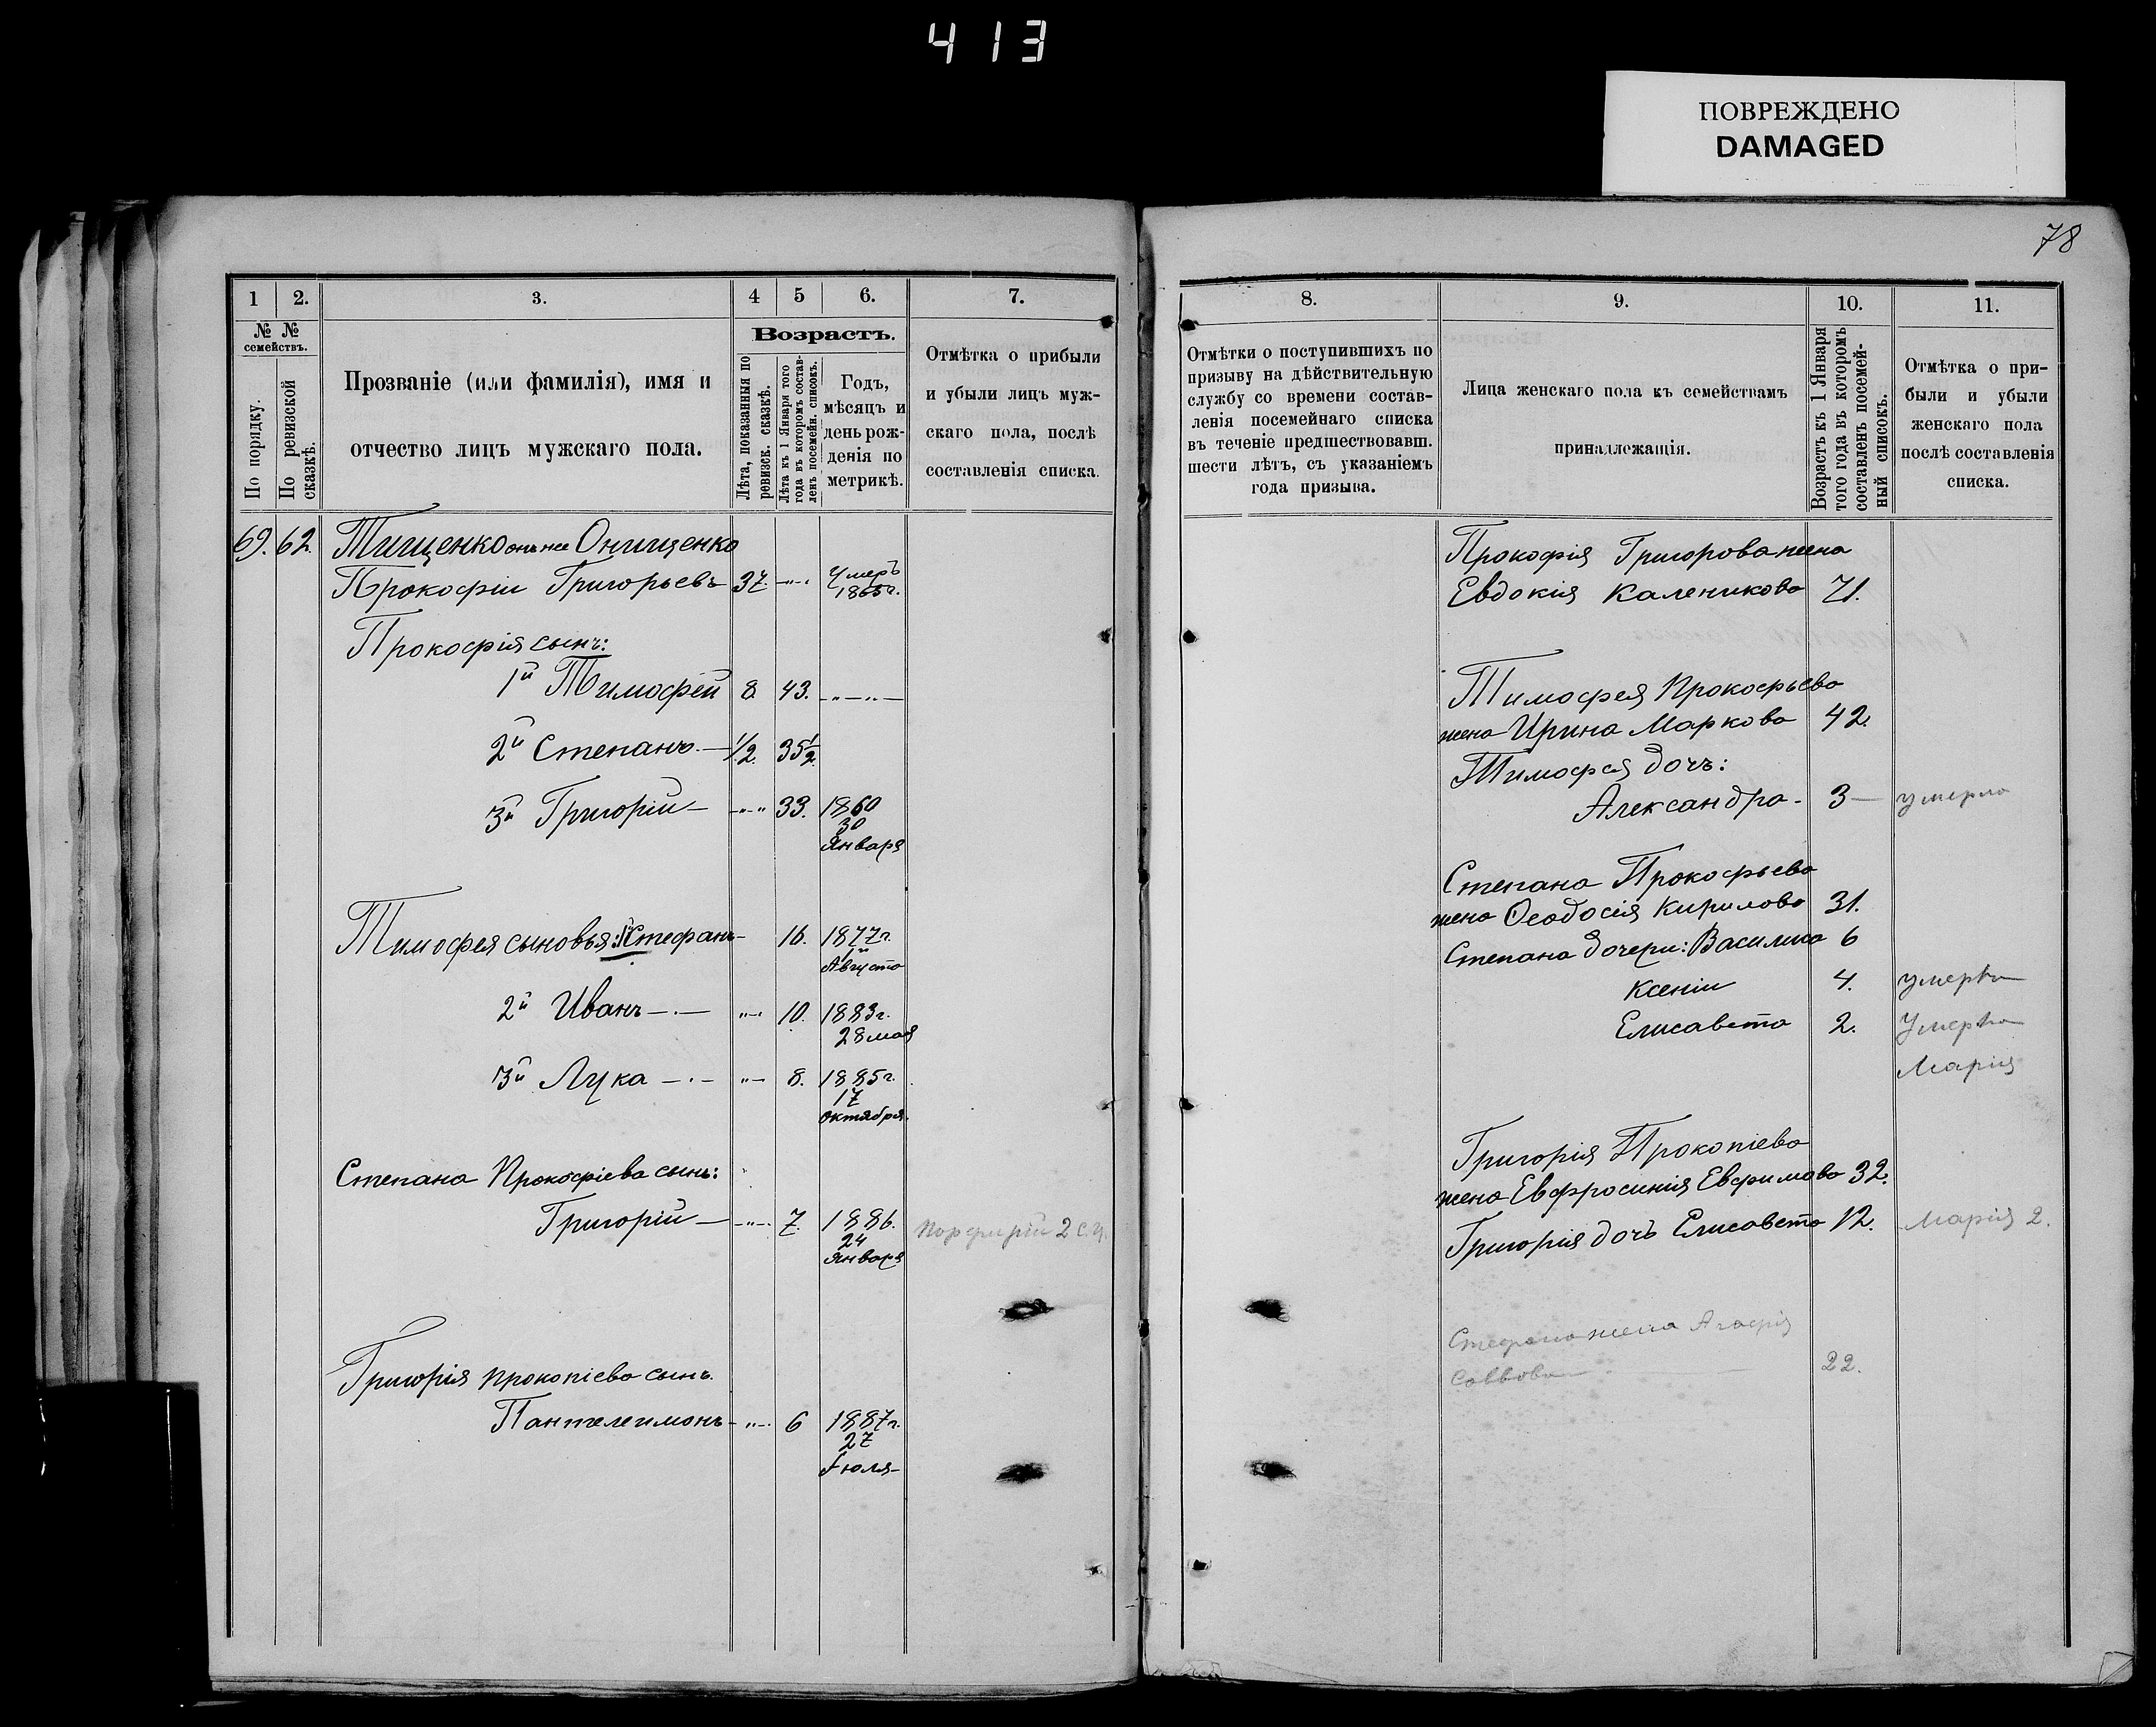 413
ПОВРЕЖДЕНО
DAMAGED
78
1
2.
3.
4
5
6.
7.
№ №
семействъ.
По порядку.
По ревизской
сказкѣ.
Прозваніе (или фамилія), имя и
отчество лицъ мужскаго пола.
Возрастъ.
Лѣта, показанныя по
ревизск. сказкѣ.
Лѣта къ 1 Января того
года въ которомъ состав-
ленъ посемейн. списокъ.
Годъ,
мѣсяцъ и
день рож-
денія по
метрикѣ.
Отмѣтка о прибыли
и убыли лицъ муж-
скаго пола, послѣ
составленія списка.
69. 62. Тищенко онъ же Онищенко
Прокофій Григорьевъ 37. -"- Умеръ
1865 г.
Прокофія сынъ:
1й Тимофей 8 43. -"-"-
2й Степанъ. — 1/2. 35 1/2
3й Григорій — -"-" 33. 1860
30
Января
Тимофея сыновья: 1й Стефанъ - 16. 1877 г.
Августа
2й Иванъ -.- "-" 10. 1883 г.
28 мая
3й Лука -.- "- 8. 1885 г.
17
октября.
Степана Прокофіева сынъ:
Григорій — -"-. 7. 1886. Порфирій 2
24
Января
Григорія Прокопіева сынъ.
Пантелеимонъ - "-. 6 1887 г.
27
Іюля
8.
9.
10.
11.
Отмѣтки о поступившихъ по
призыву на дѣйствительную
службу со времени состав-
ленія посемейнаго списка
въ теченіе предшествовавш.
шести лѣтъ, съ указаніемъ
года призыва.
Лица женскаго пола къ семействамъ
принадлежащія.
Возрастъ къ 1 Января
того года въ которомъ
составленъ посемей-
ный списокъ.
Отмѣтка о при-
были и убыли
женскаго пола
послѣ составленія
списка.
Прокофія Григорова жена
Евдокія Каленикова 71.
Тимофея Прокофьева
жена Ирина Маркова 42.
Тимофея дочь:
Александра. 3 — умерла
Степана Прокофьева
жена Ѳеодосія Кирилова 31.
Степана дочери: Василиса 6
Ксенія 4. умерла
Елисавета 2. Умерла
Марія
Григорія Прокопіева
жена Евфросинія Евфимова 32.
Григорія дочь Елисавета 12. Марія 2.
Стефана жена Агафія
Саввова 22.